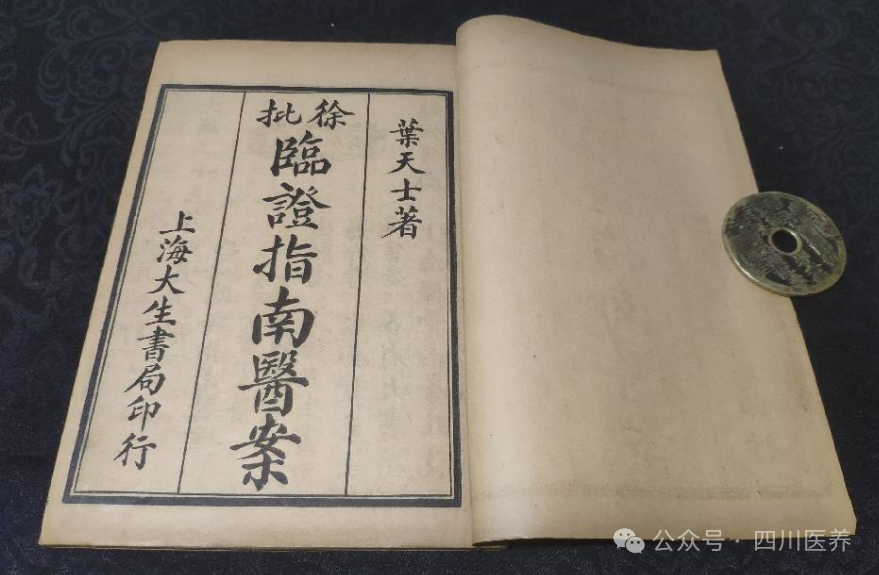 葉天士著
徐批
臨證指南醫案
上海大生書局印行
公众号·四川医养